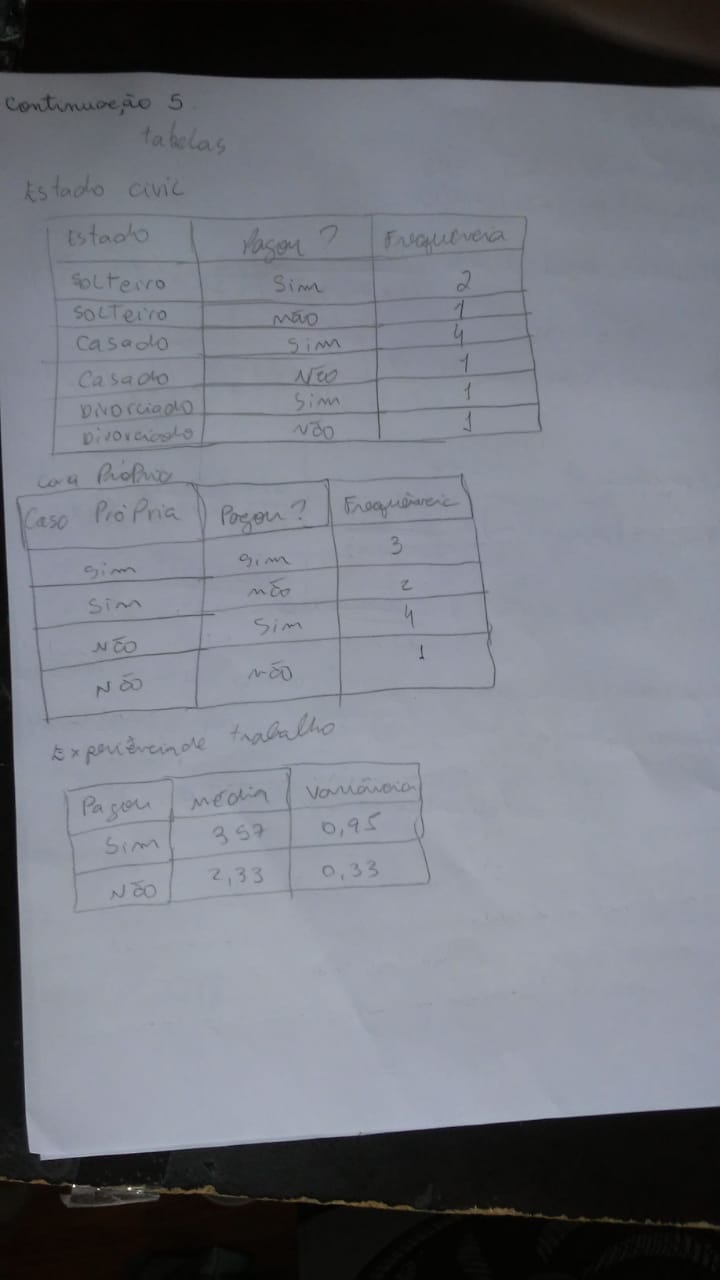 Continuação 5.
tabelas
Estado civil
Estado Pagou? Frequência
Solteiro Sim 2
Solteiro não 1
Casado Sim 4
Casado Não 1
Divorciado Sim 1
Divorciado Não 1
Casa Própria
Casa Própria Pagou? Frequência
Sim Sim 3
Sim não 2
Não Sim 4
Não não 1
Experiência de trabalho
Pagou média Variância
Sim 357 0,95
Não 2,33 0,33